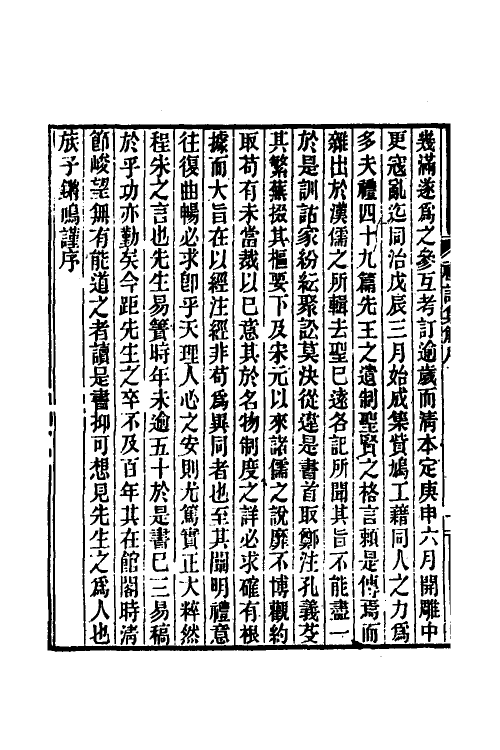 幾滿遂爲之參互考訂逾歲而清本定庚申六月開雕中
更寇亂迄同治戊辰三月始成集貲鳩工藉同人之力爲
多夫禮四十九篇先王之遺制聖賢之格言賴是傳焉而
雜出於漢儒之所輯去聖已遠各記所聞其旨不能盡一
於是訓詁家紛紜聚訟莫決從違是書首取鄭注孔義芟
其繁蕪掇其樞要下及宋元以來諸儒之說靡不博觀約
取苟有未當裁以己意其於名物制度之詳必求確有根
據而大旨在以經注經非苟爲異同者也至其闡明禮意
往復曲暢必求卽乎天理人心之安則尤篤實正大粹然
程朱之言也先生易簀時年未逾五十於是書已三易稿
於乎功亦勤矣今距先生之卒不及百年其在館閣時清
節峻望無有能道之者讀是書抑可想見先生之爲人也
族子鏘鳴謹序